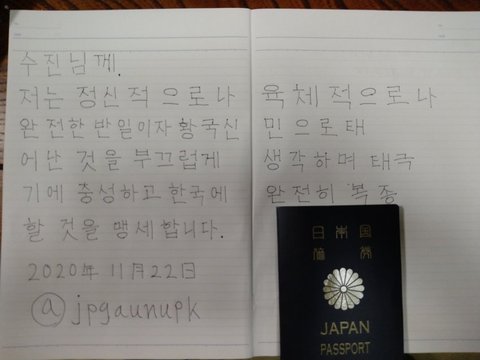 수진님께.
저는 정신적으로나 육체적으로나
완전한 반일이자 황국신민으로 태
어난 것을 부끄럽게 생각하며 태극
기에 충성하고 한국에 완전히 복종
할 것을 맹세합니다.
2020年 11月22日
@jpgaunupk
日本国
旅券
JAPAN
PASSPORT